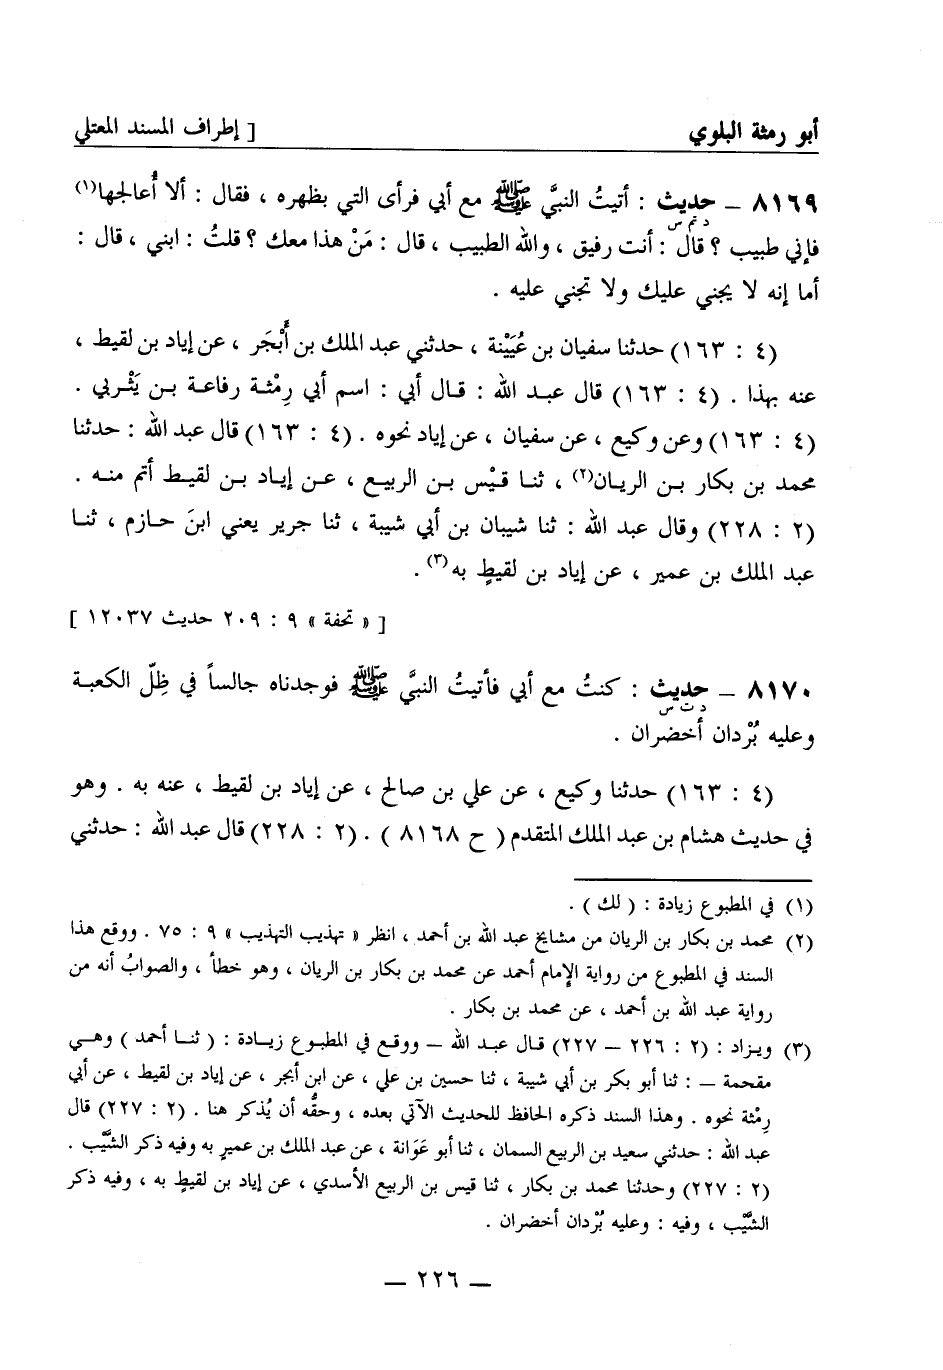 أبو رمثة البلوي
[ إطراف المسند المعتلي
٨١٦٩ – حديث : أتيتُ النبيَّ ﷺ مع أبي فرأى التي بظهره ، فقال : ألا أُعالجها(١)
د تم س
فإني طبيب ؟ قال : أنت رفيق ، والله الطبيب ، قال : مَنْ هذا معك ؟ قلتُ : ابني ، قال :
أما إنه لا يجني عليك ولا تجني عليه .
(٤ : ١٦٣) حدثنا سفيان بن عُيَيْنة ، حدثني عبد الملك بن أَبْجَر ، عن إياد بن لقيط ،
عنه بهذا . (٤ : ١٦٣) قال عبد الله : قال أبي : اسم أبي رِمْثة رفاعة بن يَثْربي .
(٤ : ١٦٣) وعن وكيع ، عن سفيان ، عن إياد نحوه . (٤ : ١٦٣) قال عبد الله : حدثنا
محمد بن بكار بن الريان(٢) ، ثنا قيْس بن الربيع ، عن إياد بن لقيط أتم منه .
(٢ : ٢٢٨) وقال عبد الله : ثنا شيبان بن أبي شيبة ، ثنا جرير يعني ابنَ حازم ، ثنا
عبد الملك بن عمير ، عن إياد بن لقيطٍ به(٣) .
[ « تحفة » ٩ : ٢٠٩ حديث ١٢٠٣٧ ]
٨١٧٠ – حديث : كنتُ مع أبي فأتيتُ النبيَّ ﷺ فوجدناه جالساً في ظِلّ الكعبة
د ت س
وعليه بُرْدان أخضران .
(٤ : ١٦٣) حدثنا وكيع ، عن علي بن صالح ، عن إياد بن لقيط ، عنه به . وهو
في حديث هشام بن عبد الملك المتقدم ( ح ٨١٦٨ ) . (٢ : ٢٢٨) قال عبد الله : حدثني
(١) في المطبوع زيادة : ( لك ) .
(٢) محمد بن بكار بن الريان من مشايخ عبد الله بن أحمد ، انظر « تهذيب التهذيب » ٩ : ٧٥ . ووقع هذا
السند في المطبوع من رواية الإمام أحمد عن محمد بن بكار بن الريان ، وهو خطأ ، والصوابُ أنه من
رواية عبد الله بن أحمد ، عن محمد بن بكار .
(٣) ويزاد : (٢ : ٢٢٦ – ٢٢٧) قال عبد الله – ووقع في المطبوع زيادة : ( ثنا أحمد ) وهي
مقحمة – : ثنا أبو بكر بن أبي شيبة ، ثنا حسين بن علي ، عن ابن أبجر ، عن إياد بن لقيط ، عن أبي
رِمْثة نحوه . وهذا السند ذكره الحافظ للحديث الآتي بعده ، وحقُّه أن يُذكر هنا . (٢ : ٢٢٧) قال
عبد الله : حدثني سعيد بن الربيع السمان ، ثنا أبو عَوَانة ، عن عبد الملك بن عميرٍ به وفيه ذكر الشَّيْب .
(٢ : ٢٢٧) وحدثنا محمد بن بكار ، ثنا قيس بن الربيع الأسدي ، عن إياد بن لقيطٍ به ، وفيه ذكر
الشَّيْب ، وفيه : وعليه بُرْدان أخضران .
– ٢٢٦ –